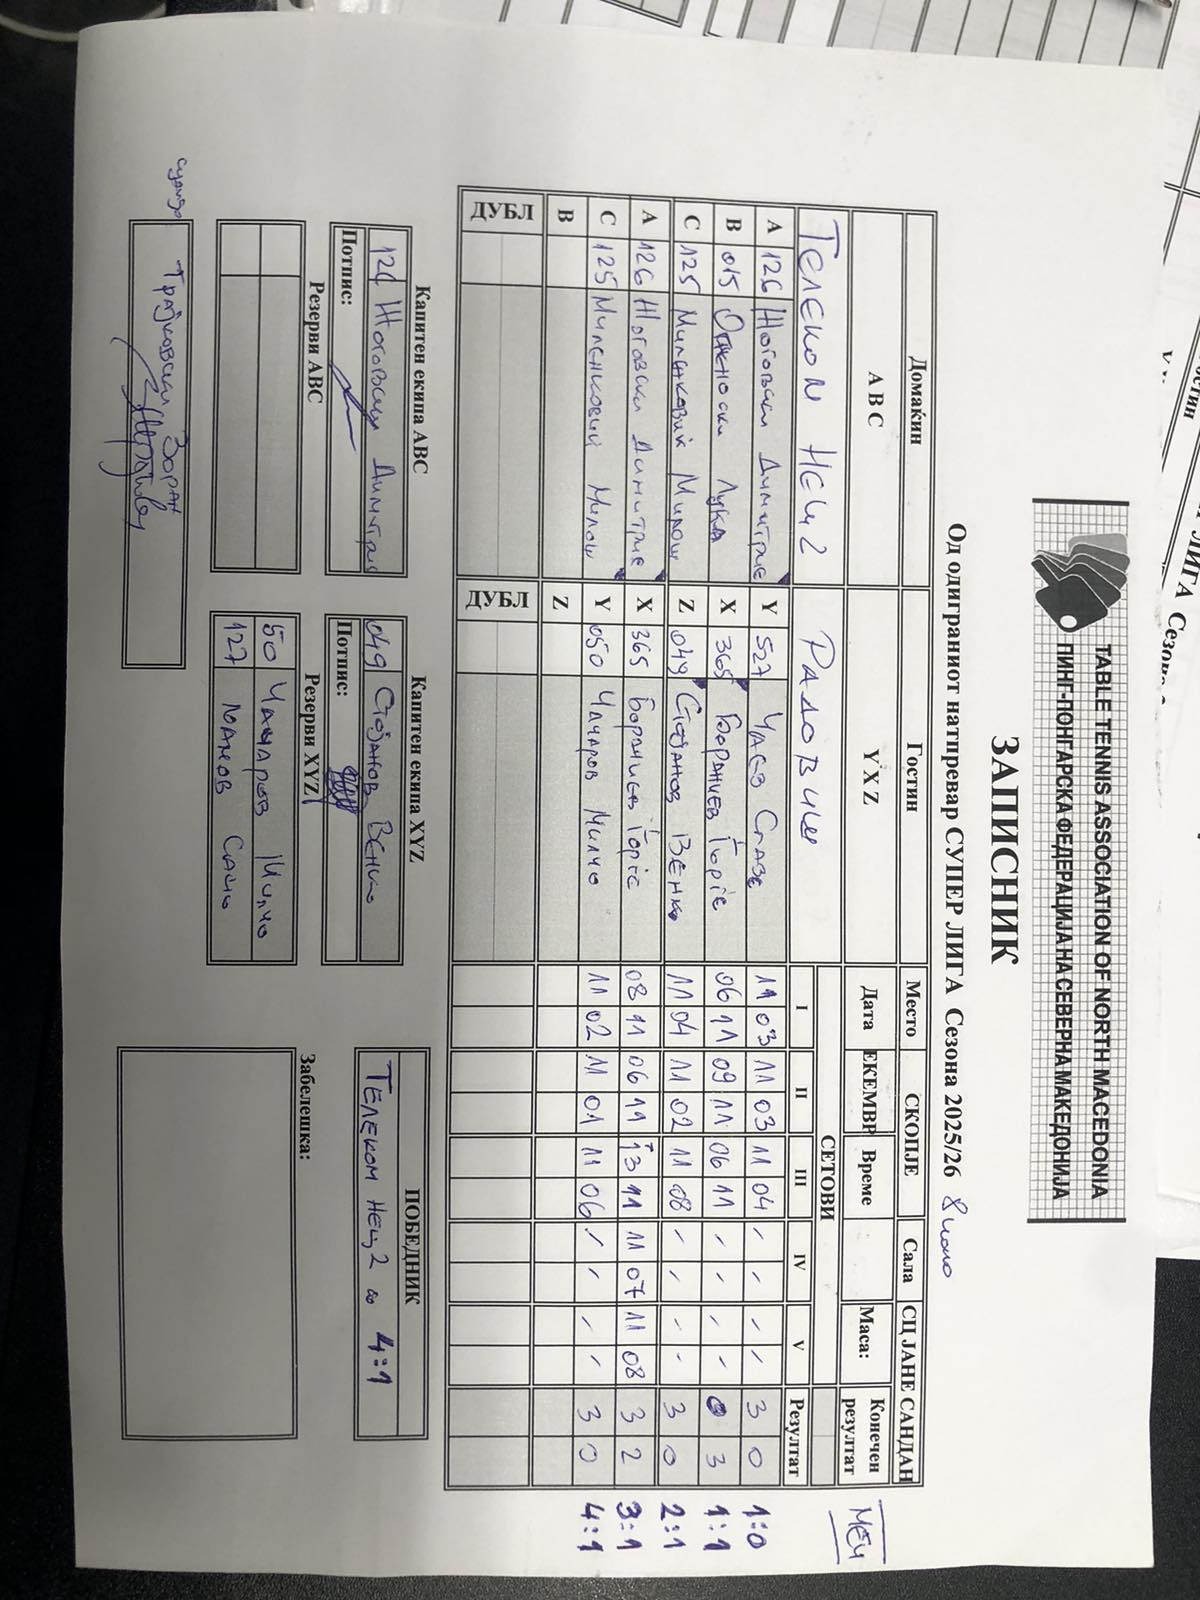 TABLE TENNIS ASSOCIATION OF NORTH MACEDONIA
ПИНГ-ПОНГАРСКА ФЕДЕРАЦИЈА НА СЕВЕРНА МАКЕДОНИЈА
ЗАПИСНИК
Од одиграниот натпревар СУПЕР ЛИГА Сезона 2025/26 8 коло
Домаќин Гостин Место СКОПЈЕ Сала СЦ ЈАНЕ САНДАН
A B C Y X Z Дата ЕКЕМВР Време Маса: Конечен резултат
МЕЧ
ТЕЛЕКОМ НЕЦ 2 РАДОВИШ СЕТОВИ
I II III IV V Резултат
A 126 Жоговски Димитрие Y 527 Спазе 11 03 11 03 11 04 / / / / 3 0 1:0
B 015 Лука X 365 Ѓорѓе 06 11 09 11 06 11 / / / / 0 3 1:1
C 125 Миленковиќ Милош Z 049 Стојанов Венко 11 04 11 02 11 08 / / / / 3 0 2:1
A 126 Жоговски Димитрие X 365 Ѓорѓе 08 11 06 11 13 11 11 07 11 08 3 2 3:1
C 125 Миленковиќ Милош Y 050 Чачаров Милчо 11 02 11 01 11 06 / / / / 3 0 4:1
B Z
ДУБЛ ДУБЛ
Капитен екипа ABC Капитен екипа XYZ ПОБЕДНИК
126 Жоговски Димитрие 049 Стојанов Венко ТЕЛЕКОМ НЕЦ 2 со 4:1
Потпис: Потпис:
Резерви ABC Резерви XYZ Забелешка:
50 Чачаров Милчо
127 Манов Сашо
судија Трајковски Зоран